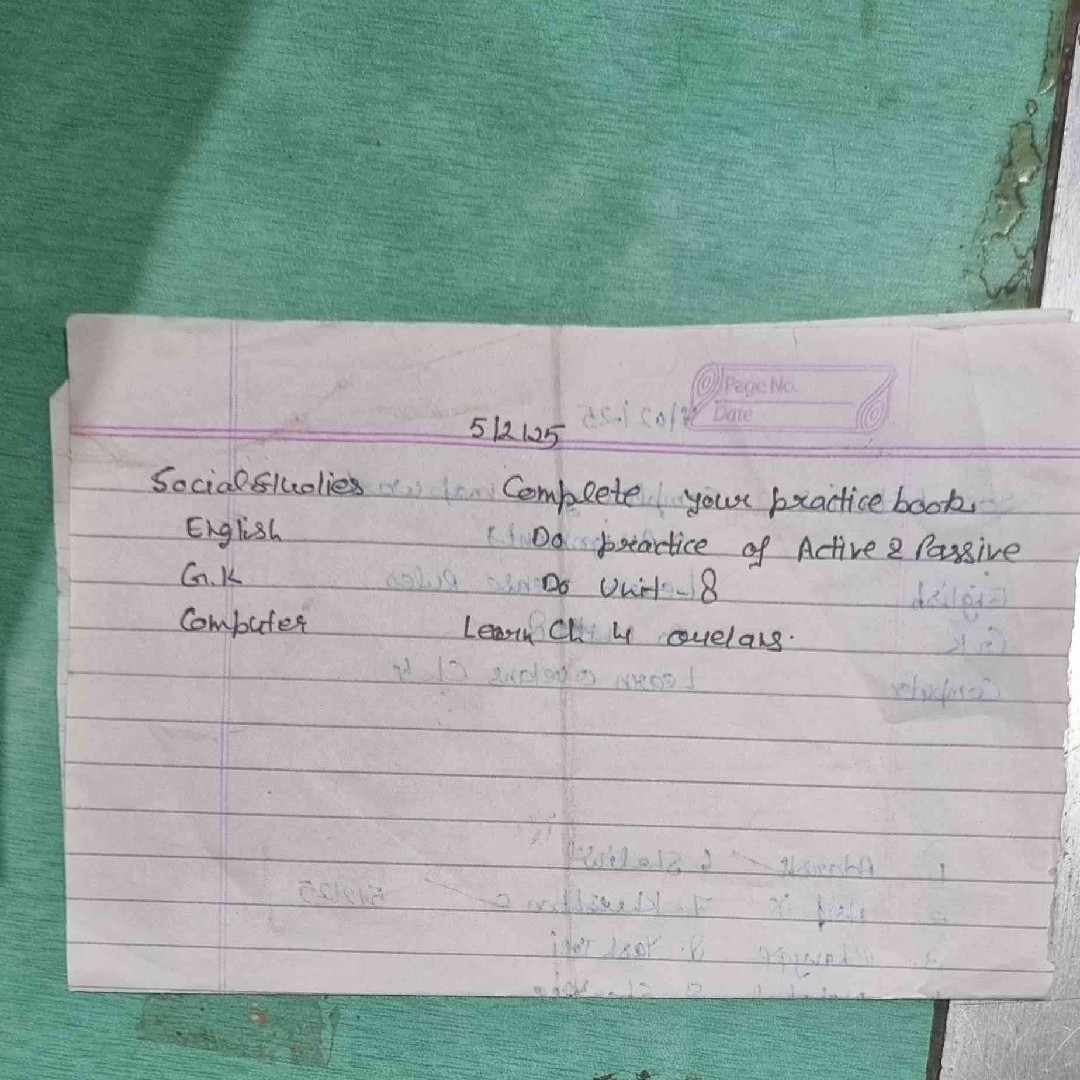 Page No.
Date
5/2/25
Social Studies Complete your practice book.
English Do practice of Active & Passive
G.K Do Unit-8
Computer Learn Ch 4